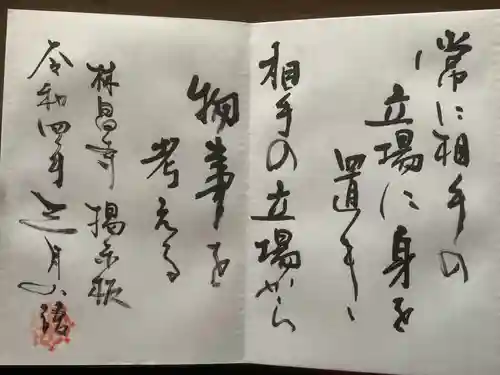 常に相手の
立場に身を
置き、
相手の立場から
物事を
考える
林昌寺 掲示板
令和四年 三月